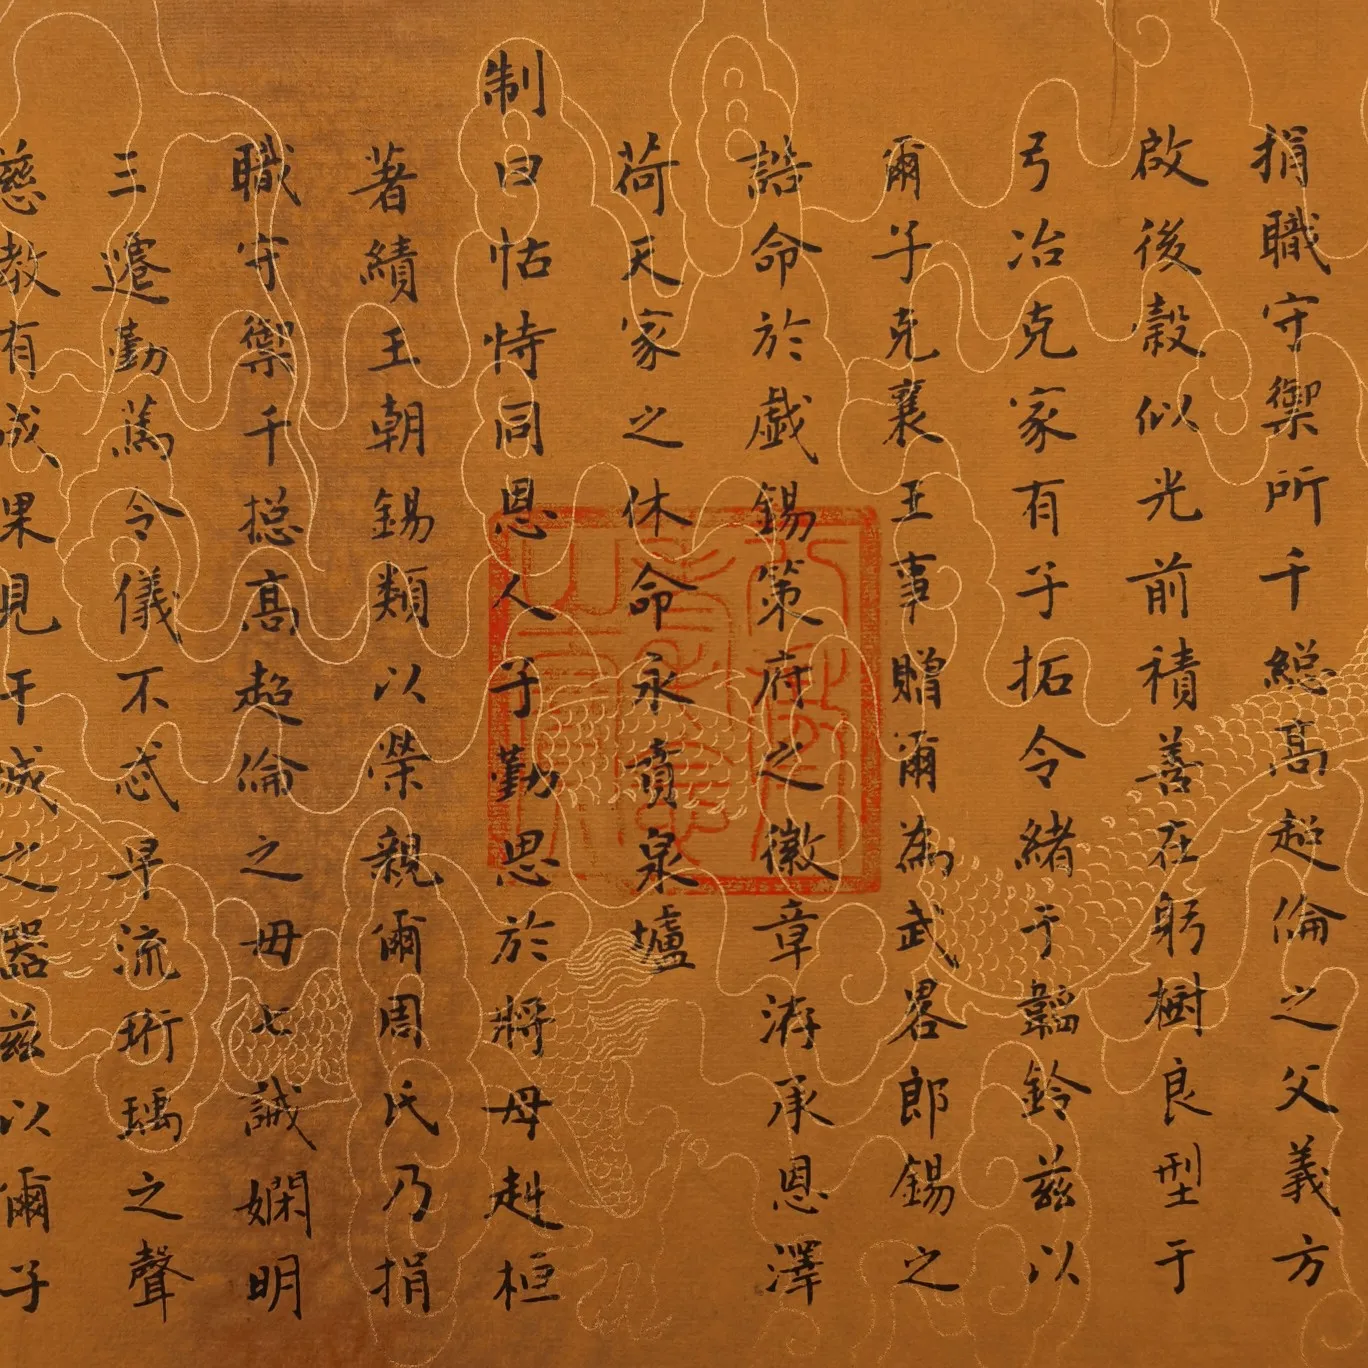 捐職守禦所千緫髙超倫之父義方
啟後穀似光前積善在躬樹良型于
弓冶克家有子拓令緒于韜鈐兹以
爾子克襄王事贈爾為武畧郎錫之
誥命於戲錫策府之徽章洊承恩澤
荷天家之休命永賁泉壚
制曰怙恃同恩人子勤思於將母赳桓
著績王朝錫類以榮親爾周氏乃捐
職守禦千摠髙超倫之母七誡嫻明
三遷勤篤令儀不忒早流珩瑀之聲
慈教有成果見干城之器兹以爾子